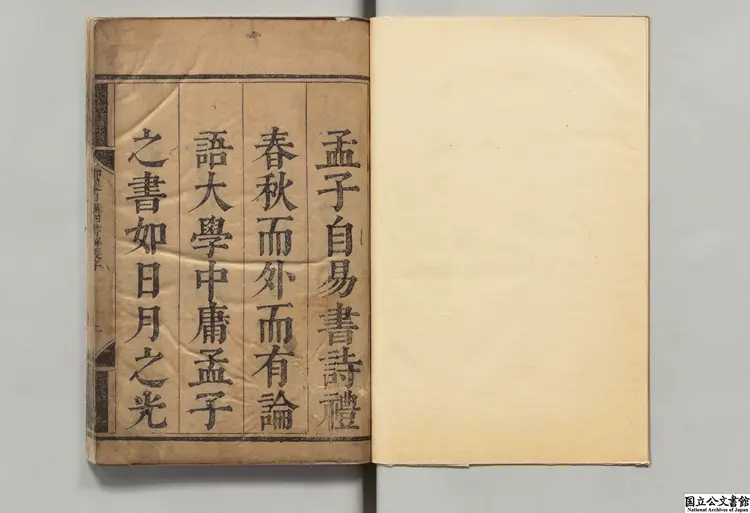 孟子自易書詩禮
春秋而外而有論
語大學中庸孟子
之書如日月之光
国立公文書館
National Archives of Japan